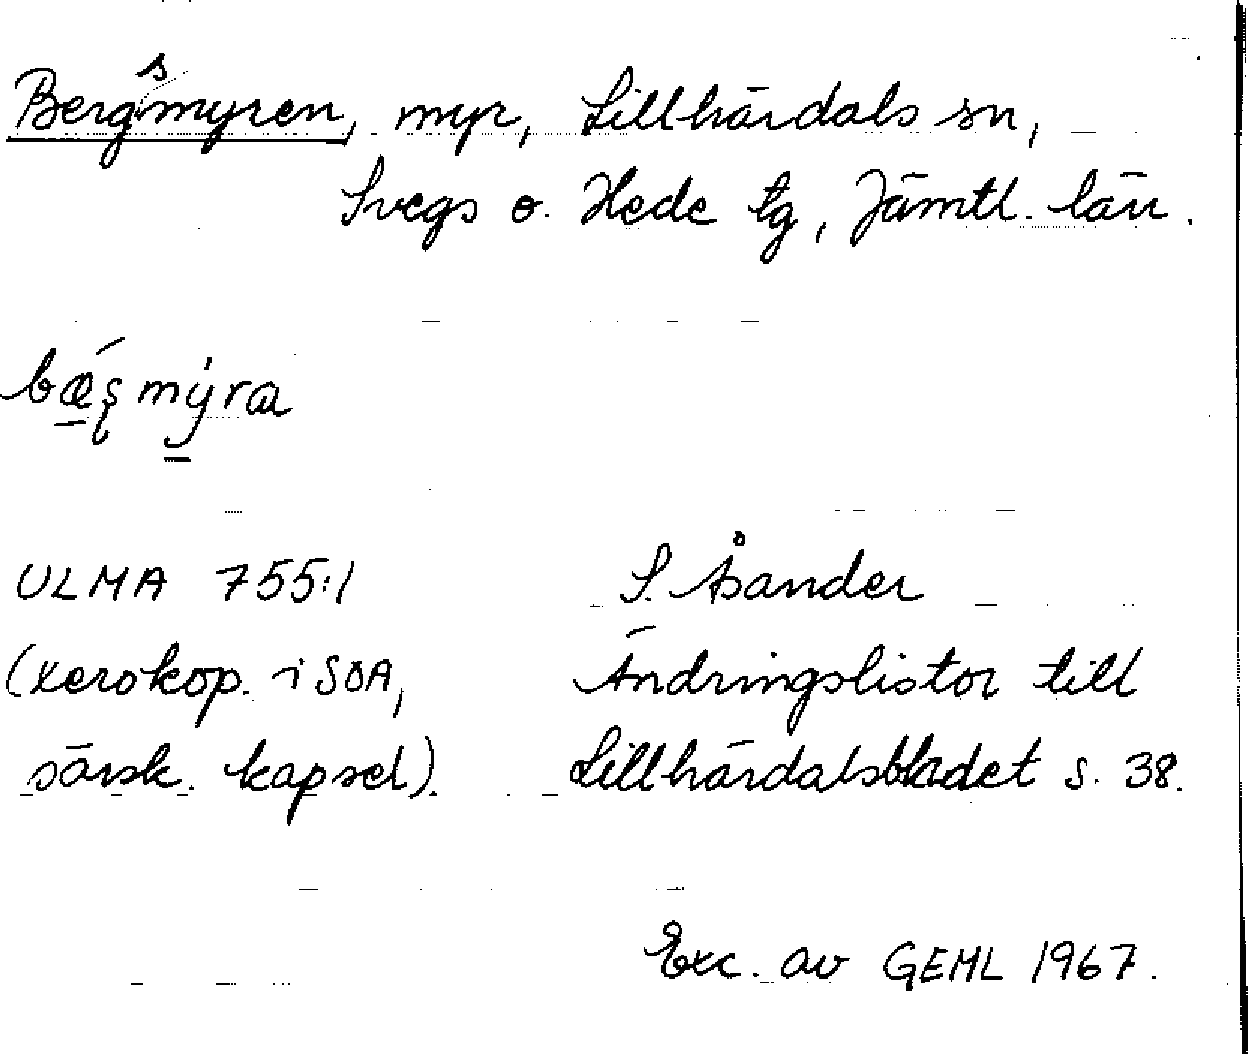 Bergsmyren, myr, Lillhärdals sn,
Svegs o. Hede tg, Jämtl. län.
bǽʂmýra
ULMA 755:1 S. Åsander
(Xerokop. i SOA, Ändringslistor till
särsk. kapsel). Lillhärdalsbladet s. 38.
Exc. av GEHL 1967.